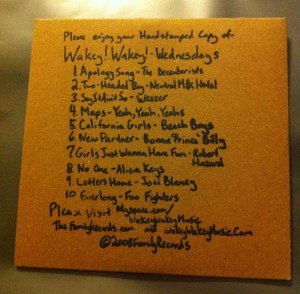 Please enjoy your Handstamped Copy of-
Wakey! Wakey! - Wednesdays
1. Apology Song - The Decemberists
2. Two-Headed Boy - Neutral Milk Hotel
3. Say It Ain't So - Weezer
4. Maps - Yeah, Yeah, Yeahs
5. California Girls - Beach Boys
6. New Partner - Bonnie Prince Billy
7 Girls Just Wanna Have Fun - Robert
Hazard
8. No One - Alicia Keys
9. Letters Home - Josh Blaney
10 Everlong - Foo Fighters
Please Visit Myspace.com/
WakeyWakeyMusic
TheFamilyRecords.com and WakeyWakeyMusic.Com
©2008 FamilyRecords